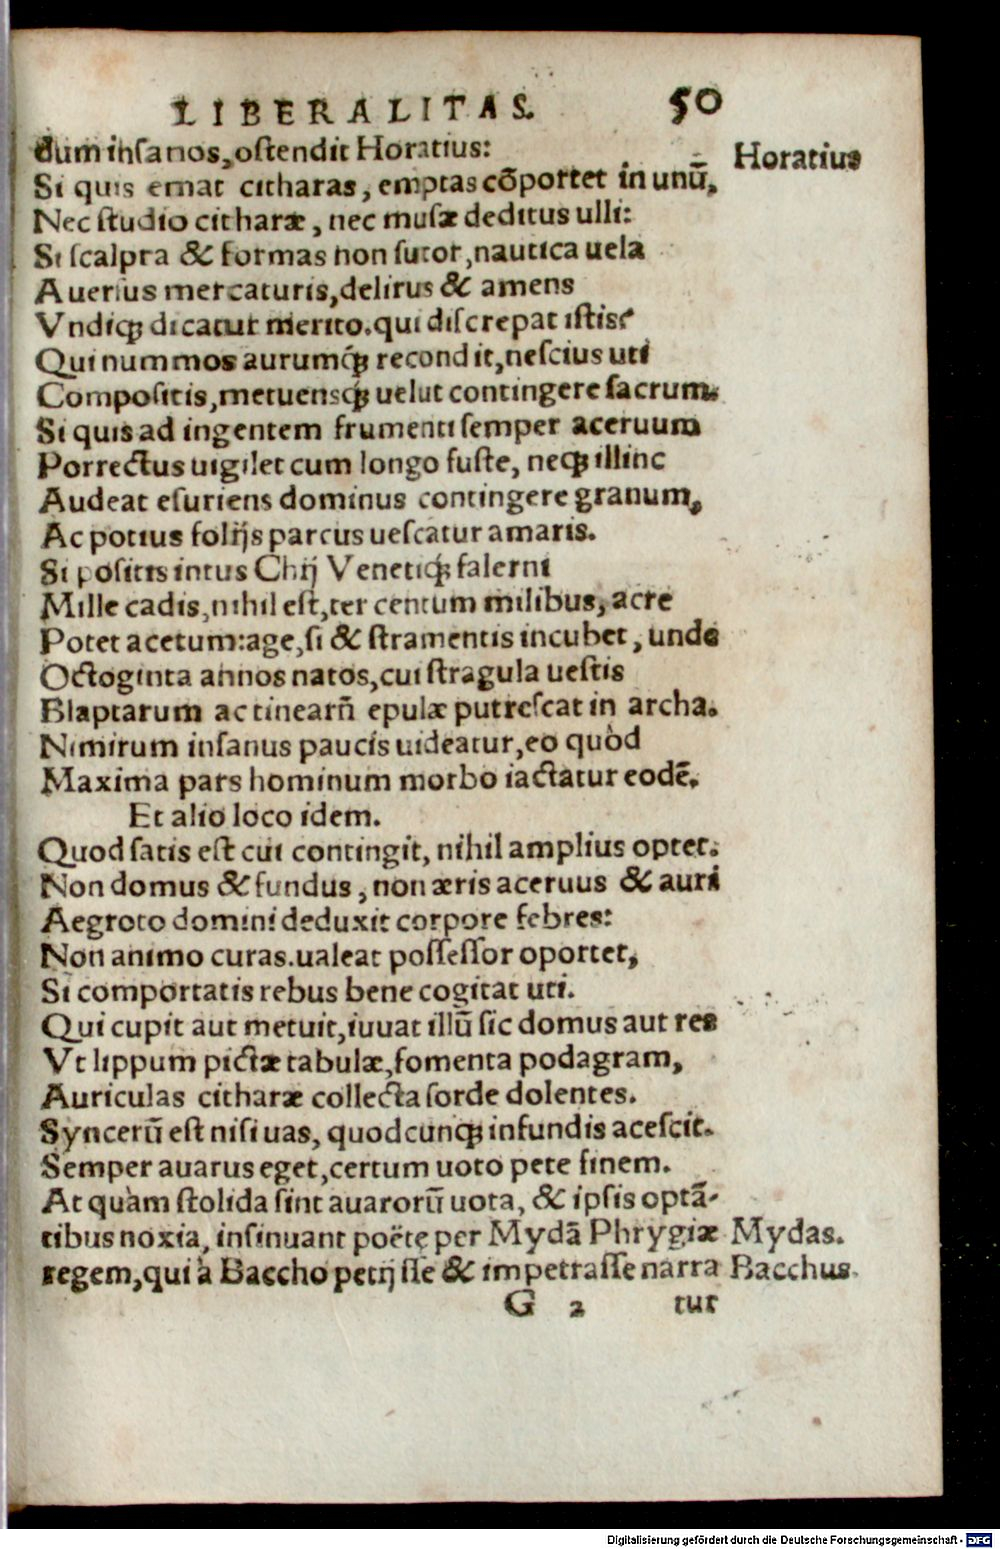 LIBERALITAS. 50
dum insanos, ostendit Horatius: Horatius
Si quis emat citharas, emptas cõportet in unũ,
Nec studio citharæ, nec musæ deditus ulli:
Si scalpra & formas non sutor, nautica uela
Auersus mercaturis, delirus & amens
Vndiqꝫ dicatur merito. qui discrepat istis?
Qui nummos aurumqꝫ recondit, nescius uti
Compositis, metuensqꝫ uelut contingere sacrum.
Si quis ad ingentem frumenti semper aceruum
Porrectus uigilet cum longo fuste, neqꝫ illinc
Audeat esuriens dominus contingere granum,
Ac potius folijs parcus uescatur amaris.
Si positis intus Chij Venetiqꝫ falerni
Mille cadis, nihil est, ter centum milibus, acre
Potet acetum: age, si & stramentis incubet, unde
Octoginta annos natos, cui stragula uestis
Blaptarum ac tinearũ epulæ putrescat in archa.
Nimirum insanus paucis uideatur, eo quòd
Maxima pars hominum morbo iactatur eodẽ.
Et alio loco idem.
Quod satis est cui contingit, nihil amplius optet.
Non domus & fundus, non æris aceruus & auri
Aegroto domini deduxit corpore febres:
Non animo curas. ualeat possessor oportet,
Si comportatis rebus bene cogitat uti.
Qui cupit aut metuit, iuuat illũ sic domus aut res
Vt lippum pictæ tabulæ, fomenta podagram,
Auriculas citharæ collecta sorde dolentes.
Syncerũ est nisi uas, quodcunqꝫ infundis acescit.
Semper auarus eget, certum uoto pete finem.
At quàm stolida sint auarorũ uota, & ipsis optã-
tibus noxia, insinuant poëtę per Mydã Phrygiæ Mydas.
regem, qui à Baccho petijsse & impetrasse narra Bacchus.
G 2 tur
Digitalisierung gefördert durch die Deutsche Forschungsgemeinschaft - DFG